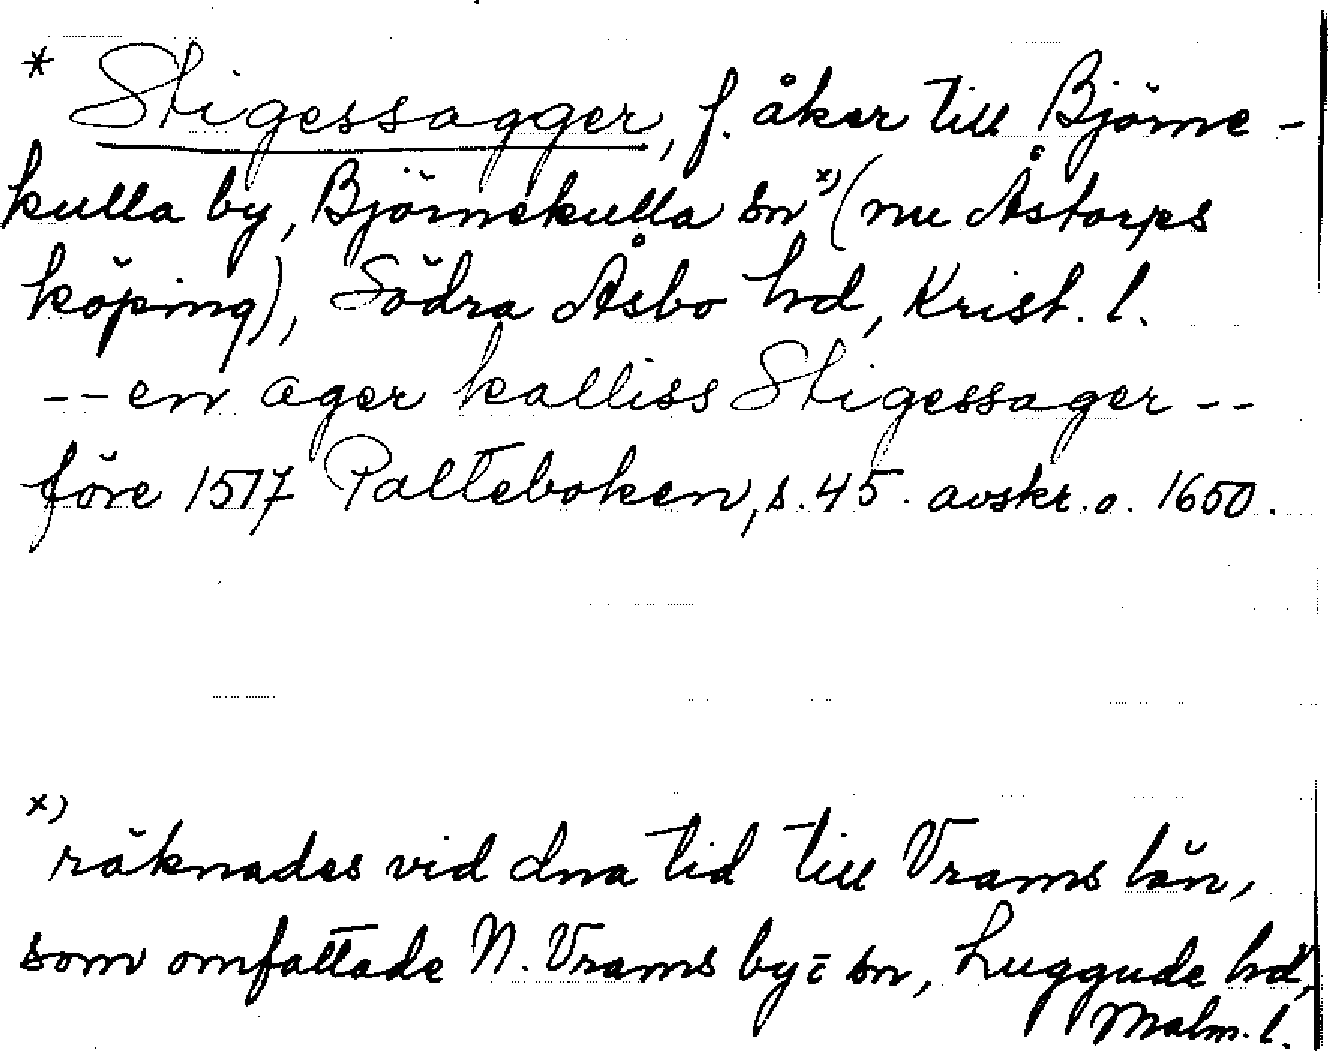 * Stigessagger, f. åker till Björne-
kulla by, Björnekulla sn x) (nu Åstorps
köping), Södra Åsbo hd, Krist. l.
-- en ager kalliss Stigessager --
före 1517 Palteboken, s. 45. avskr. o. 1650.
x) räknades vid dna tid till Vrams län,
som omfattade N. Vrams by = sn, Luggude hd,
Malm. l.